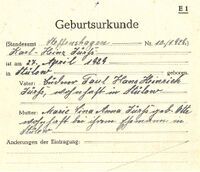 E 1
Geburtsurkunde
(Standesamt Steffenshagen Nr. 10/1929)
Karl-Heinz Fürß
ist am 27. April 1929
in Stülow geboren.
Vater: Büdner Paul Hans Heinrich
Fürß, wohnhaft in Stülow
Mutter: Marie Lina Anna Fürß geb. Otte
wohnhaft bei ihrem Ehemann in
Stülow
Änderungen der Eintragung: